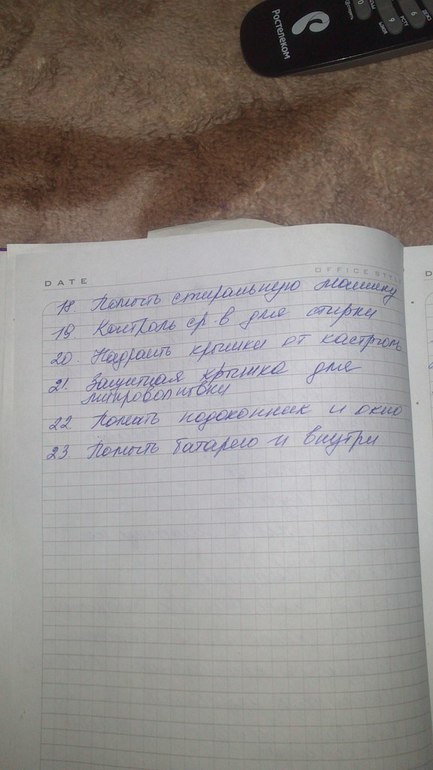 Ростелеком
DATE
OFFICE STYLE
18. Помыть стиральную машинку
19. Контроль ср-в для стирки
20. Надраить крышки от кастрюль
21. Защитная крышка для
микроволновки
22. Помыть подоконник и окно
23. Помыть батарею и внутри